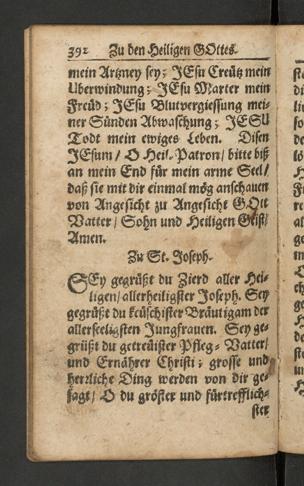 392 Zu den Heiligen GOttes.
mein Artzney sey; JEsu Creütz mein
Uberwindung; JEsu Marter mein
Freüd; JEsu Blutvergiessung mei-
ner Sünden Abwaschung; JESU
Todt mein ewiges Leben. Disen
JEsum / O Heil. Patron / bitte biß
an mein End für mein arme Seel /
daß sie mit dir einmal mög anschauen
von Angesicht zu Angesicht GOtt
Vatter / Sohn und Heiligen Geist /
Amen.
Zu St. Joseph.
SEy gegrüßt du Zierd aller Hei-
ligen / allerheiligster Joseph. Sey
gegrüßt du keüschister Bräutigam der
allerseeligsten Jungfrauen. Sey ge-
grüßt du getreüister Pfleg-Vatter /
und Ernährer Christi; grosse und
herzliche Ding werden von dir ge-
sagt / O du gröster und fürtrefflich-
ster